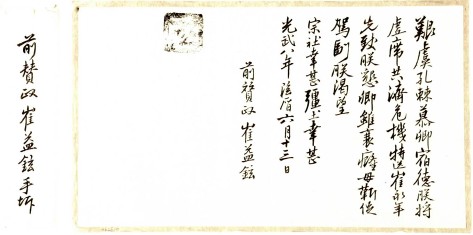 艱虞孔棘慕卿宿德朕將
虛席共濟危機特送崔永年
先致朕懇卿雖衰癃毋靳促
駕副朕渴望
宗社幸甚疆土幸甚
光武八年陰曆六月十三日
前贊政崔益鉉
前贊政崔益鉉手坼